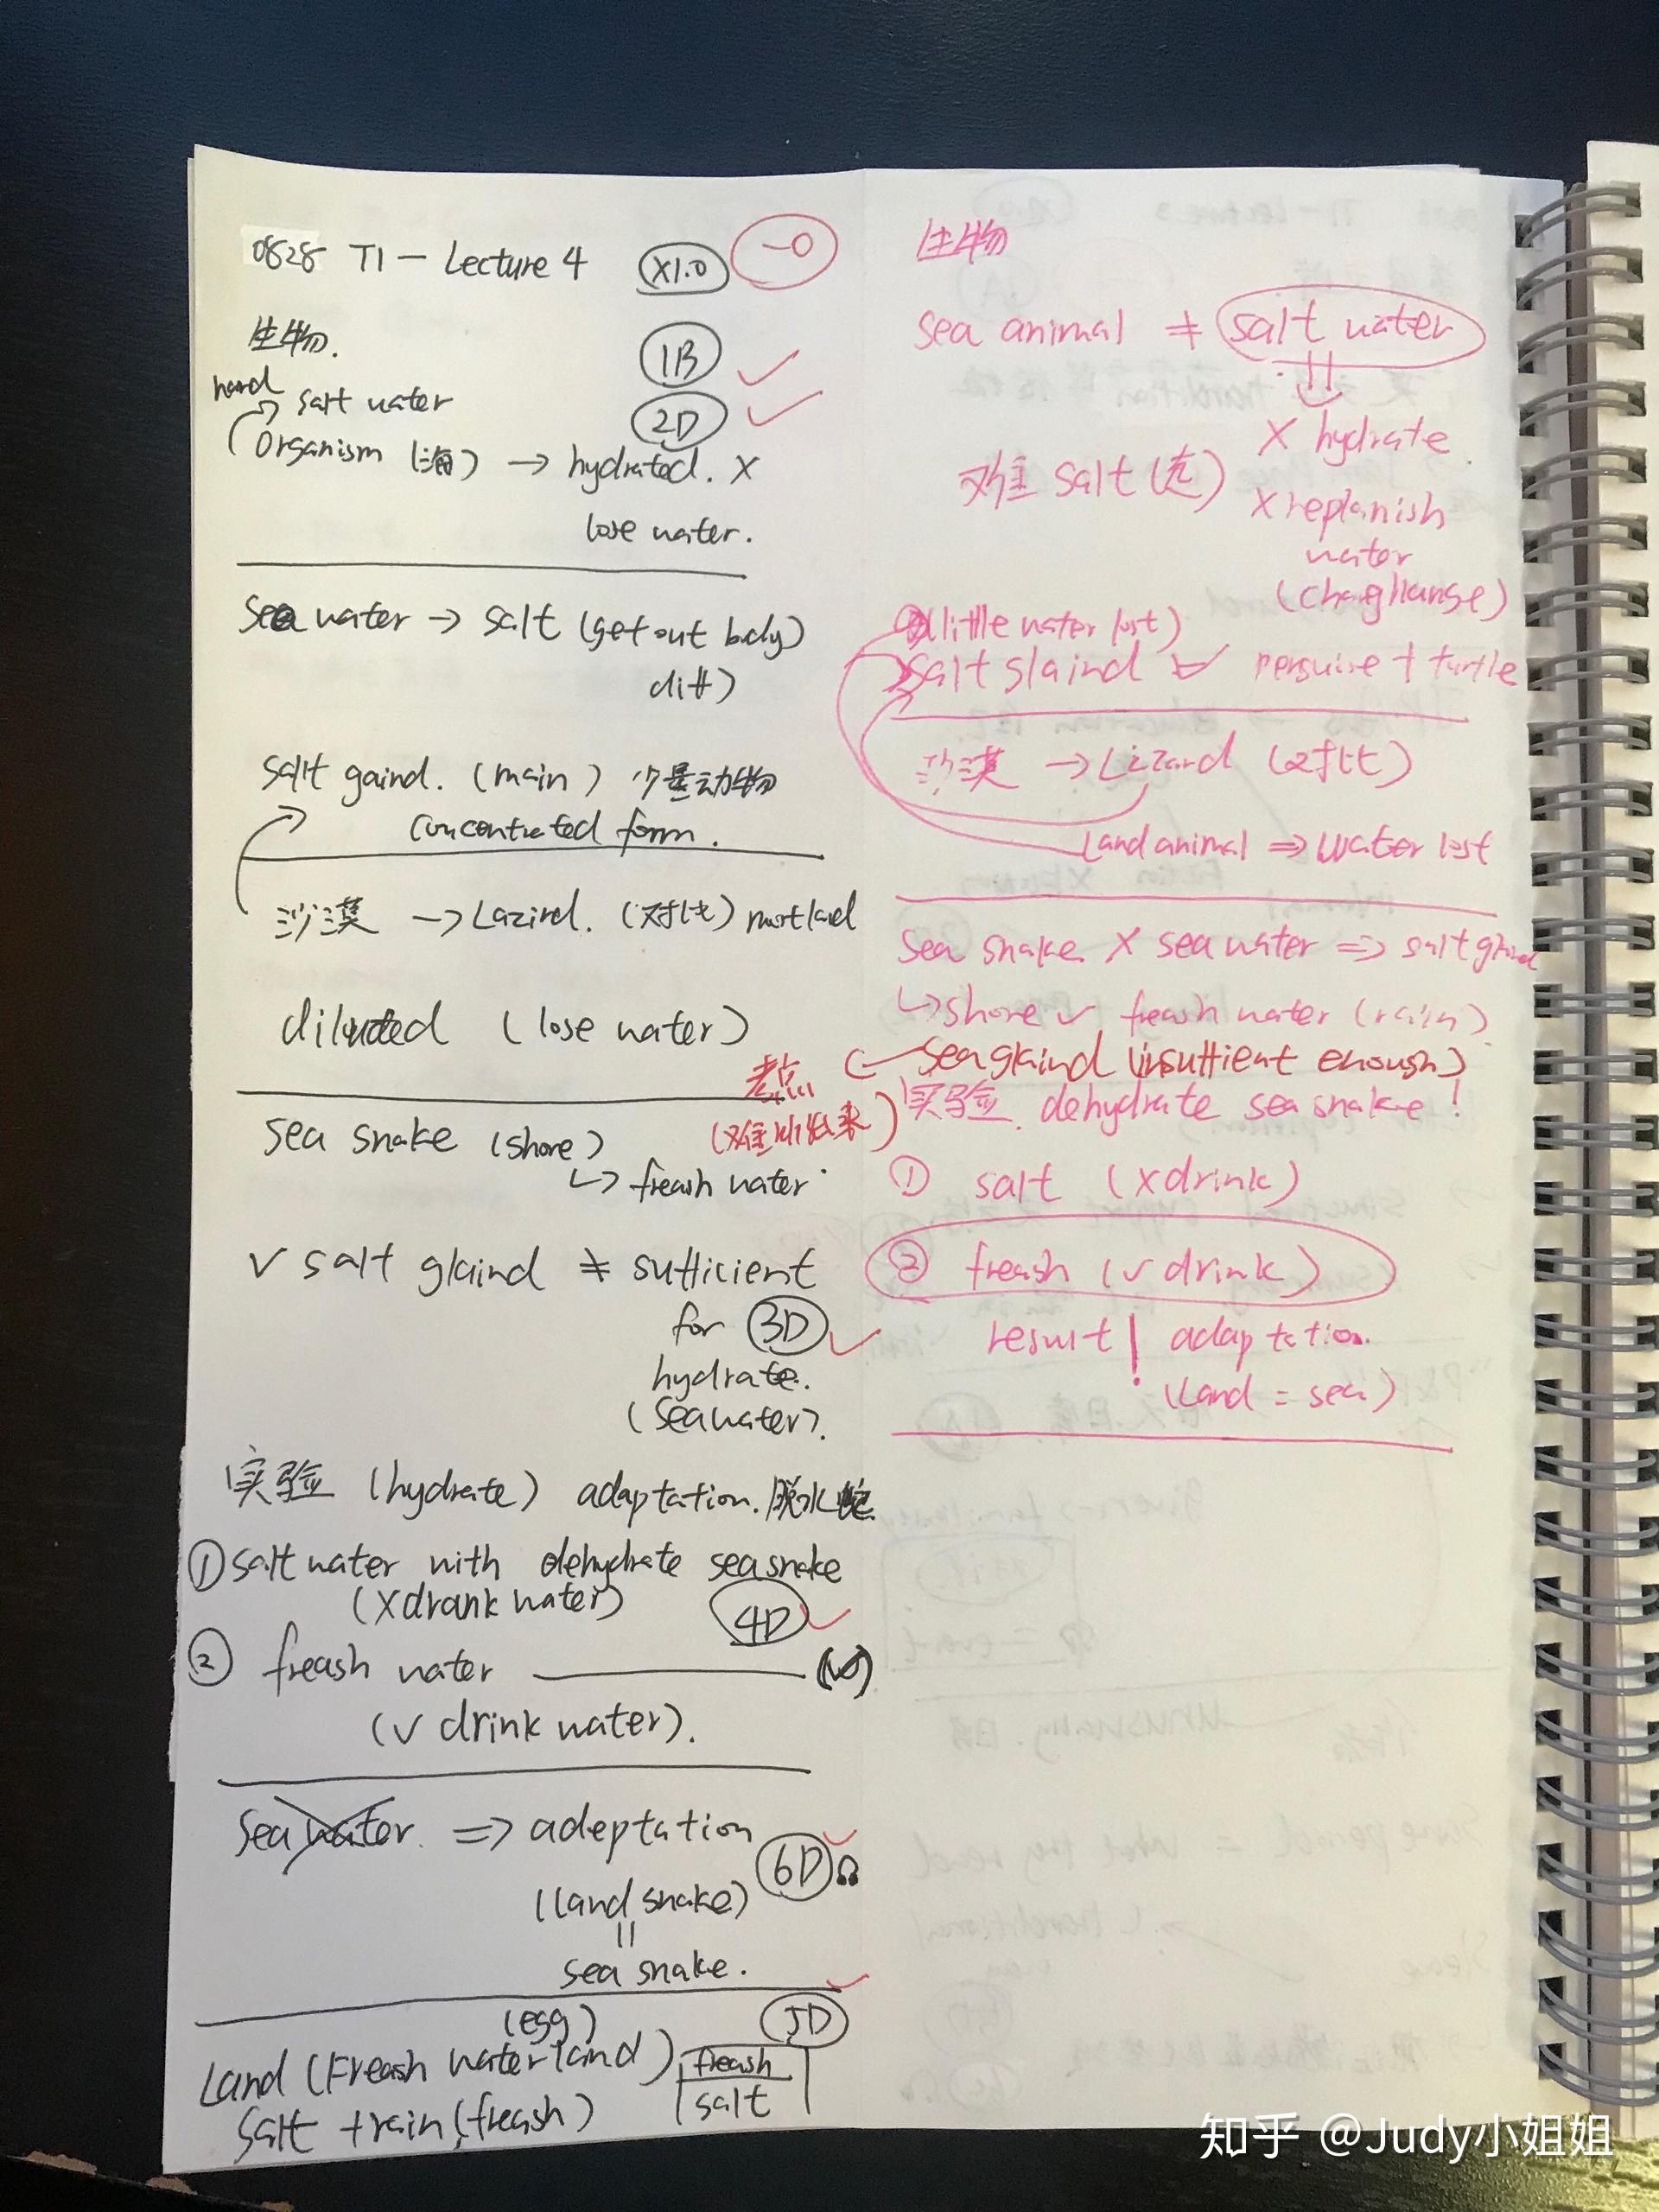 0828 T1 - Lecture 4 (X1.0) -0
生物. 1B
hard
salt water 2D
Organism (海) → hydrated. X
lose water.
Sea water → salt (get out body)
diff)
salt gaind. (main) 少量动物
concontrated form.
沙漠 → Lazird. (对比)
diluted (lose water)
sea snake (shore)
↳ freash water
√ salt glaind ≠ sufficient
for 3D
hydrate.
(seawater).
实验 (hydrate) adaptation. 脱水
① salt water with dehydrate sea snake
(X drank water) 4D
② freash water
(√ drink water).
sea water. ⇒ adeptation
6D
(land snake)
||
sea snake.
(egg) 5D
Land (Freash water land) freash
salt
salt + rain (freash)
生物
sea animal ≠ salt water
X hydrate
难 salt (去)
X replanish
water
(little water lost)
salt slaind
turtle
沙漠 → Lizard (对比)
Land animal ⇒ water lost
sea snake X sea water ⇒ salt glaind
↳ shore √ freash water (rain)
考点 ← sea glaind (insuttient enough)
实验. dehydrate sea snake!
① salt (X drink)
② freash (√ drink)
result! adaptation.
(land = sea)
知乎 @Judy小姐姐